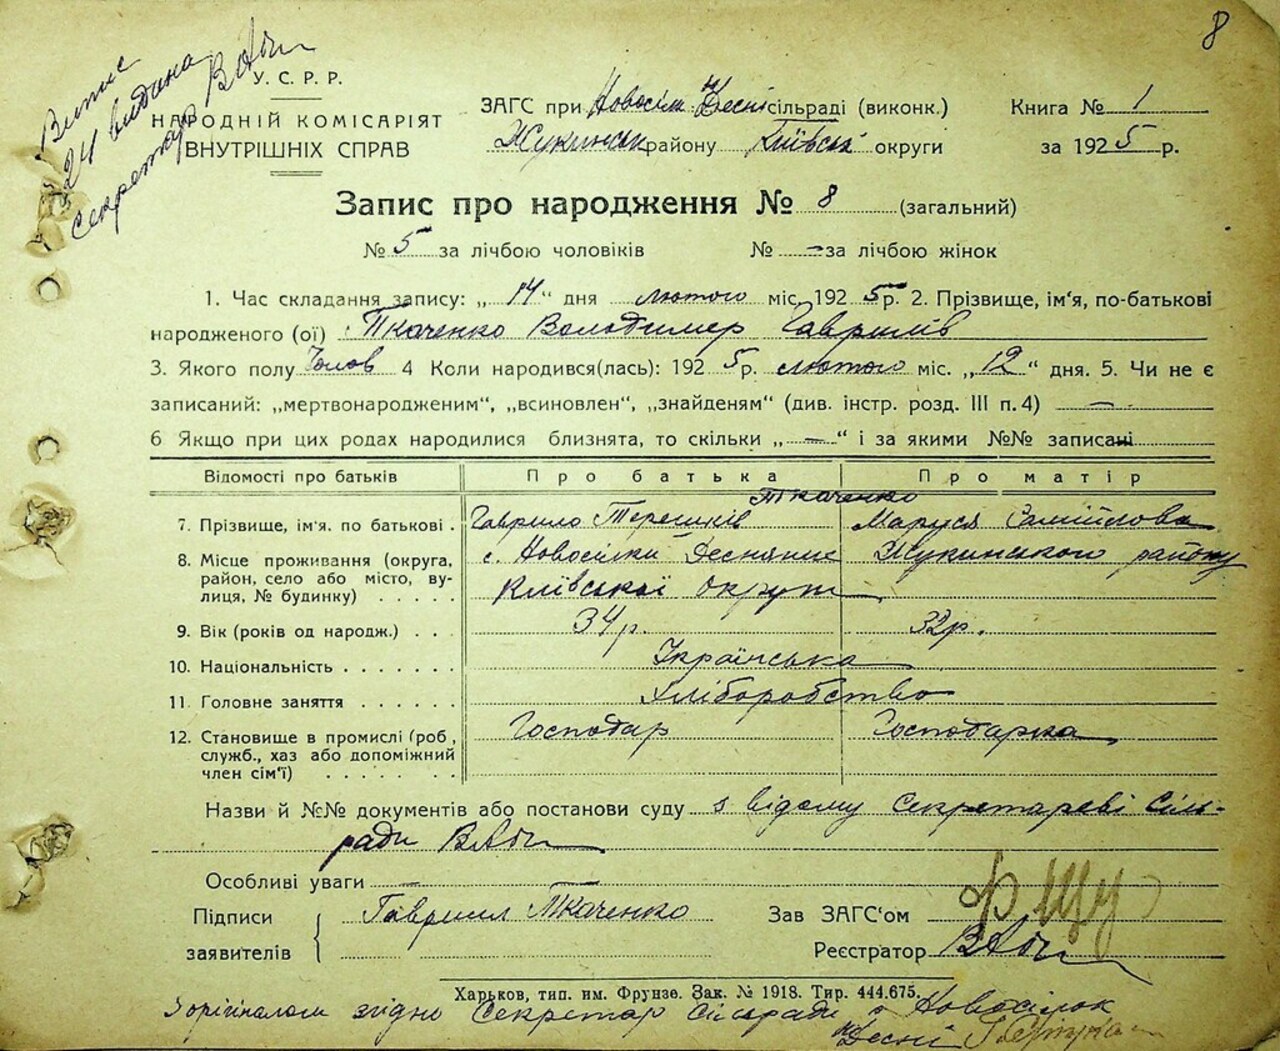 8
Випис
224 видана
Секретар
У. С. Р. Р.
НАРОДНІЙ КОМІСАРІЯТ
ВНУТРІШНІХ СПРАВ
ЗАГС при Новосілк. н/Десні сільраді (виконк.)
Жукинськ району Київськ округи
Книга № 1
за 1925 р.
Запис про народження № 8 (загальний)
№ 5 за лічбою чоловіків № — за лічбою жінок
1. Час складання запису: „ 14 “ дня лютого міс. 1925 р. 2. Прізвище, ім'я, по-батькові
народженого (ої) Ткаченко Володимер Гаврилів
3. Якого полу Чолов 4 Коли народився(лась): 1925 р. лютого міс. „ 12 “ дня. 5. Чи не є
записаний: „мертвонародженим“, „всиновлен“, „знайденям“ (див. інстр. розд. III п. 4) —
6 Якщо при цих родах народилися близнята, то скільки „ — “ і за якими №№ записані
Відомості про батьків Про батька Про матір
Ткаченко
7. Прізвище, ім'я. по батькові . Гаврило Терешків Маруся Самійлова
8. Місце проживання (округа, с. Новосілки Деснянис Жукинського району
район, село або місто, ву-
лиця, № будинку) . . . . . Київської округи
9. Вік (років од народж.) . . . 34 р. 32 р.
10. Національність . . . . . . . Українська
11. Головне заняття . . . . . . Хліборобство
12. Становище в промислі (роб., Господар Господарка
служб., хаз або допоміжний
член сім'ї) . . . . . . .
Назви й №№ документів або постанови суду з відому Секретареві Сіль-
ради
Особливі уваги
Підписи Гавриил Ткаченко Зав ЗАГС'ом
заявителів Реєстратор
Харьков, тип. им. Фрунзе. Зак. № 1918. Тир. 444.675.
З орігіналом згідно Секретар Сільради Новосілок
н/Десні